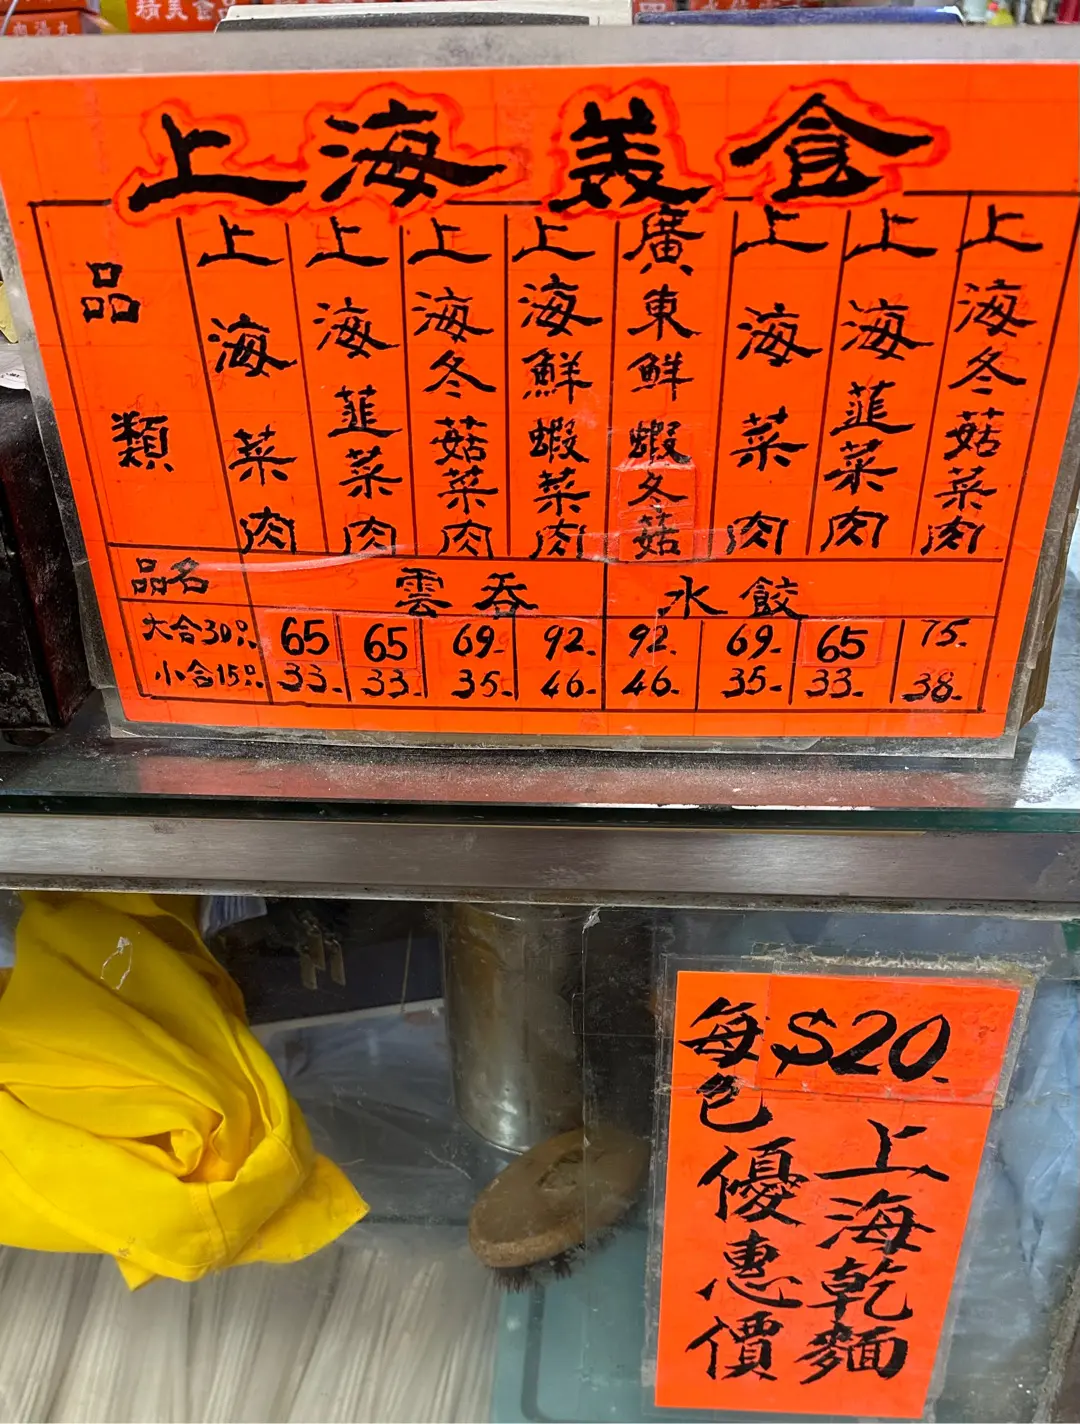 精美食品
上海美食
品類
上海菜肉
上海韮菜肉
上海冬菇菜肉
上海鮮蝦菜肉
廣東鮮蝦冬菇
上海菜肉
上海韮菜肉
上海冬菇菜肉
品名 雲吞 水餃
大合30只 65 65 69- 92- 92- 69- 65 75-
小合15只 33- 33- 35- 46- 46- 35- 33- 38-
$20
上海乾麵
每色優惠價